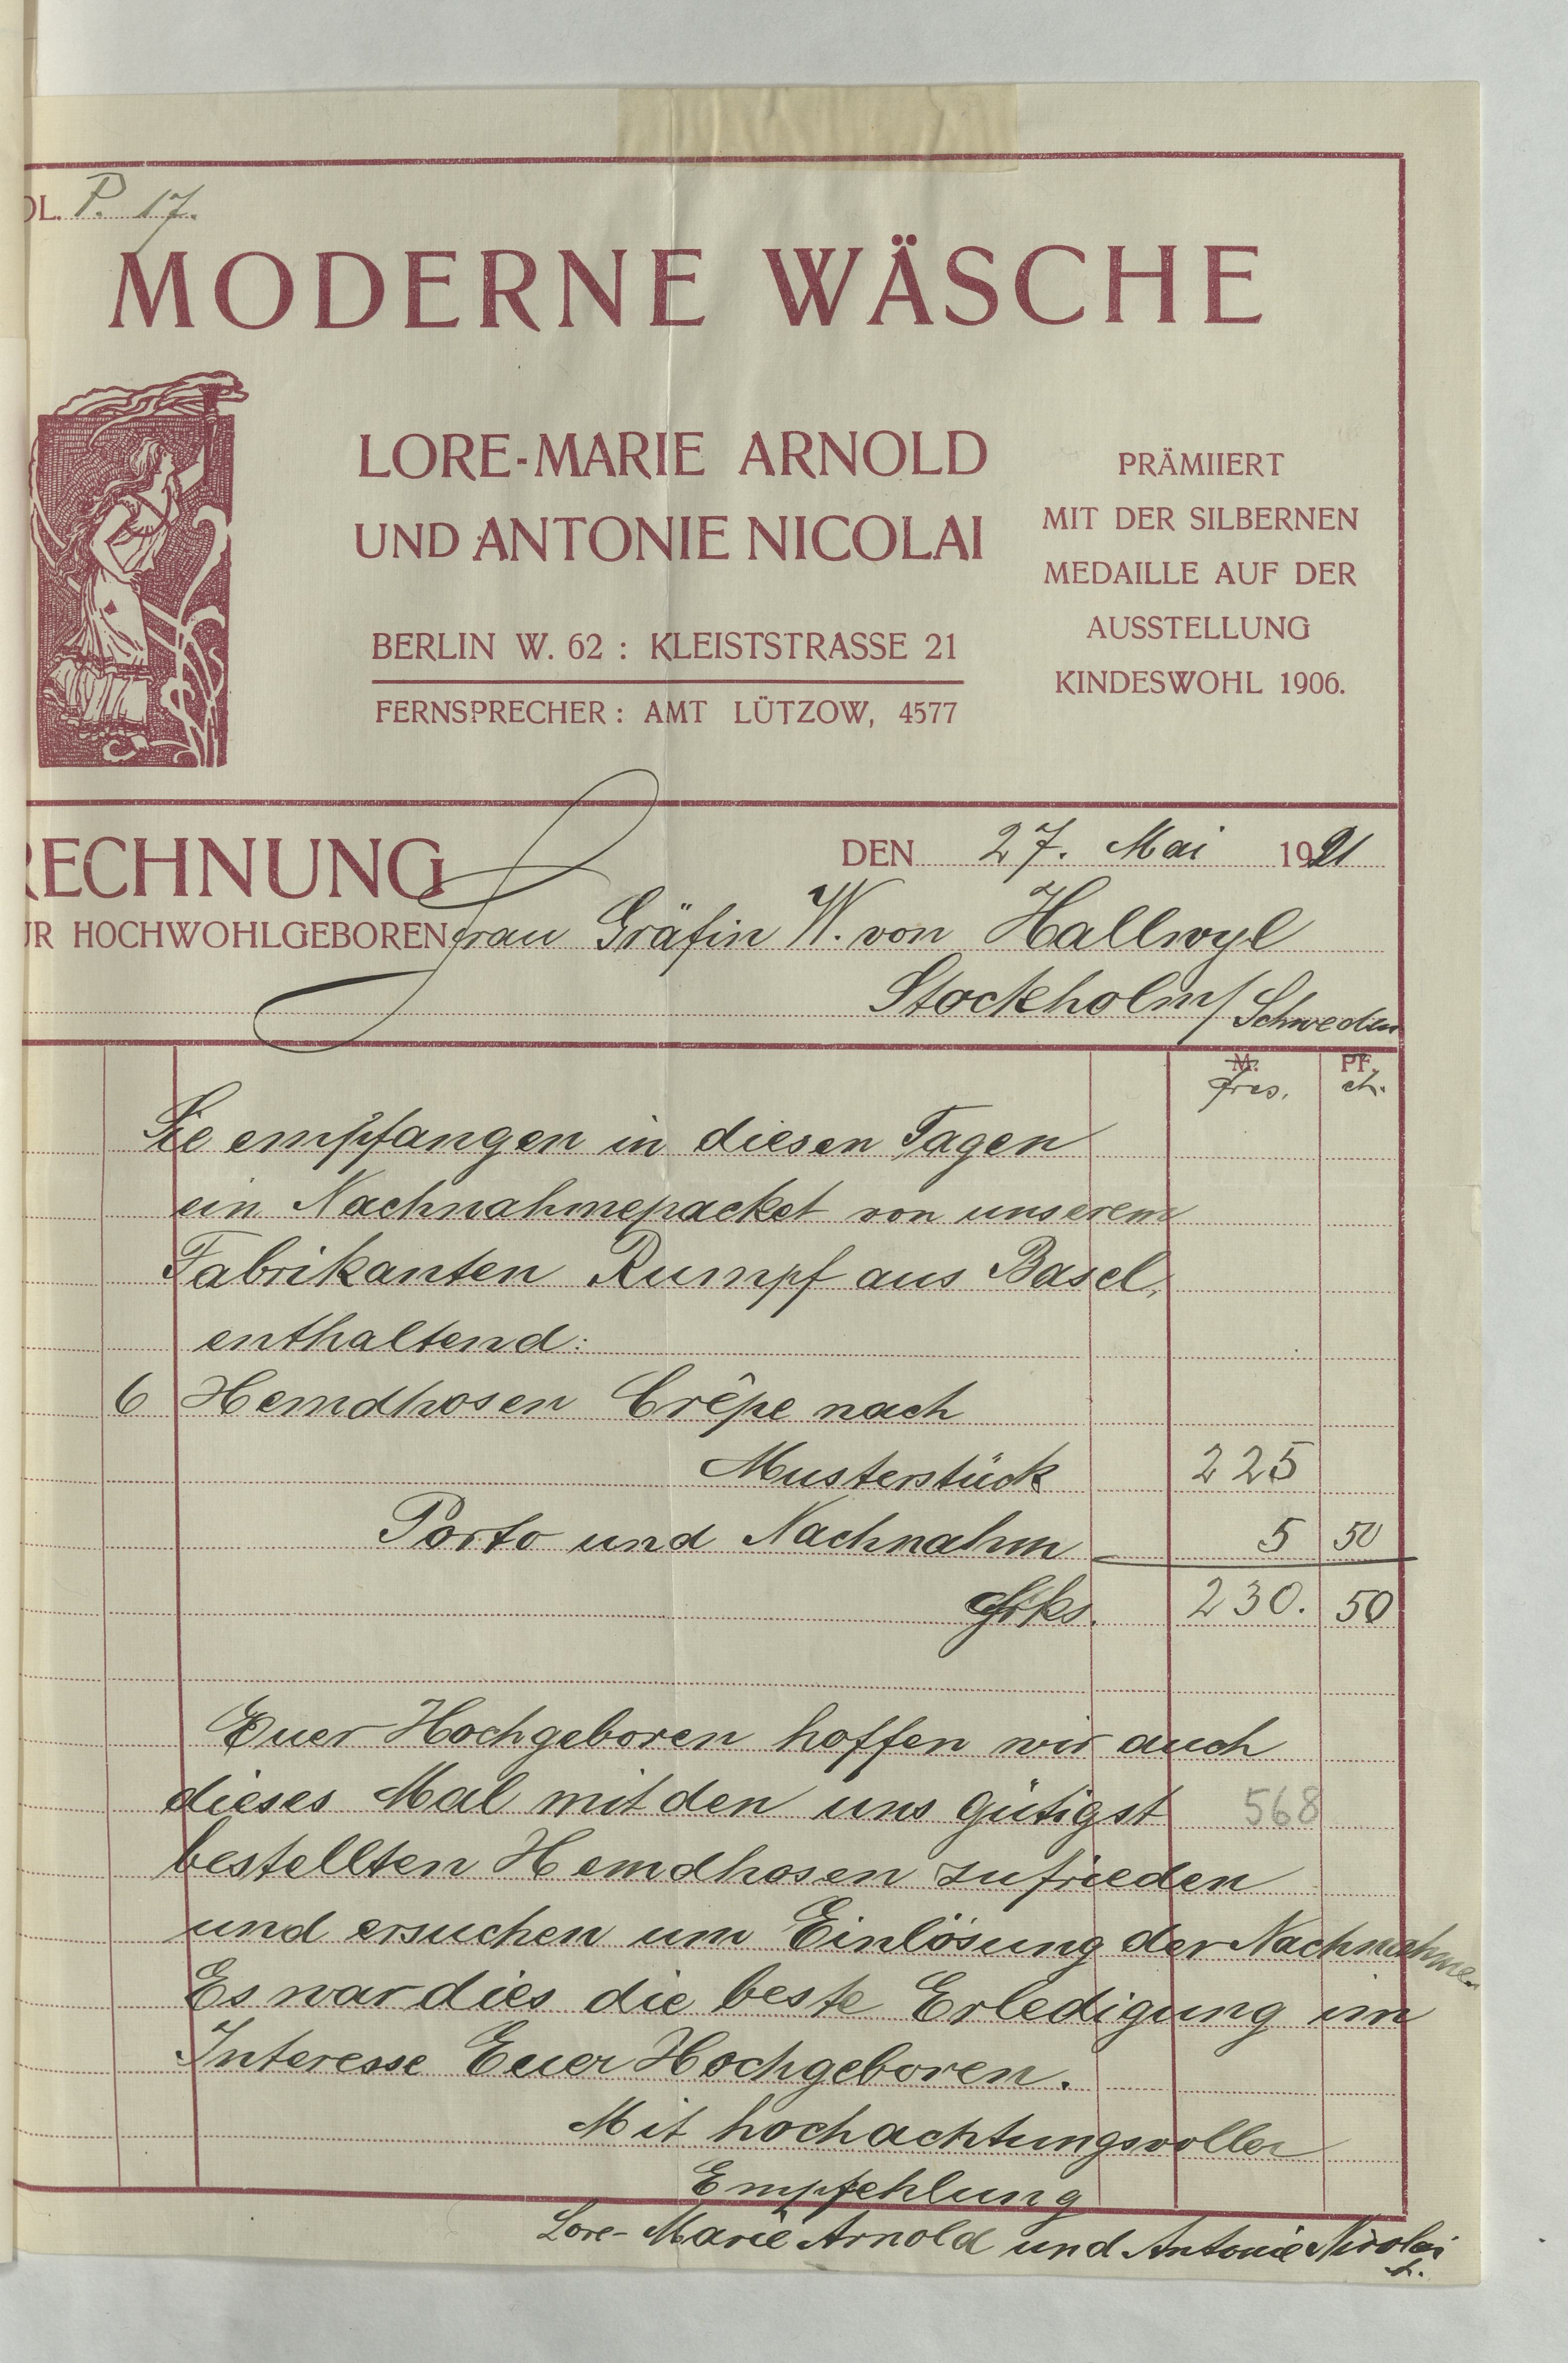 OL. P. 17.
MODERNE WÄSCHE
LORE-MARIE ARNOLD
UND ANTONIE NICOLAI
BERLIN W. 62 : KLEISTSTRASSE 21
FERNSPRECHER : AMT LÜTZOW, 4577
PRÄMIIERT
MIT DER SILBERNEN
MEDAILLE AUF DER
AUSSTELLUNG
KINDESWOHL 1906.
RECHNUNG
DEN 27. Mai 1921
UR HOCHWOHLGEBOREN Frau Gräfin W. von Hallwyl
Stockholm/Schweden
M. PF.
Frcs. ct.
Sie empfangen in diesen Tagen
ein Nachnahmepacket von unserem
Fabrikanten Rumpf aus Basel,
enthaltend:
6 Hemdhosen Crêpe nach
Musterstück 225
Porto und Nachnahm 5 50
Frks. 230. 50
Euer Hochgeboren hoffen wir auch
dieses Mal mit den uns gütigst 568
bestellten Hemdhosen zufrieden
und ersuchen um Einlösung der Nachnahme.
Es war dies die beste Erledigung im
Interesse Euer Hochgeboren.
Mit hochachtungsvoller
Empfehlung
Lore-Marie Arnold und Antonie Nicolai